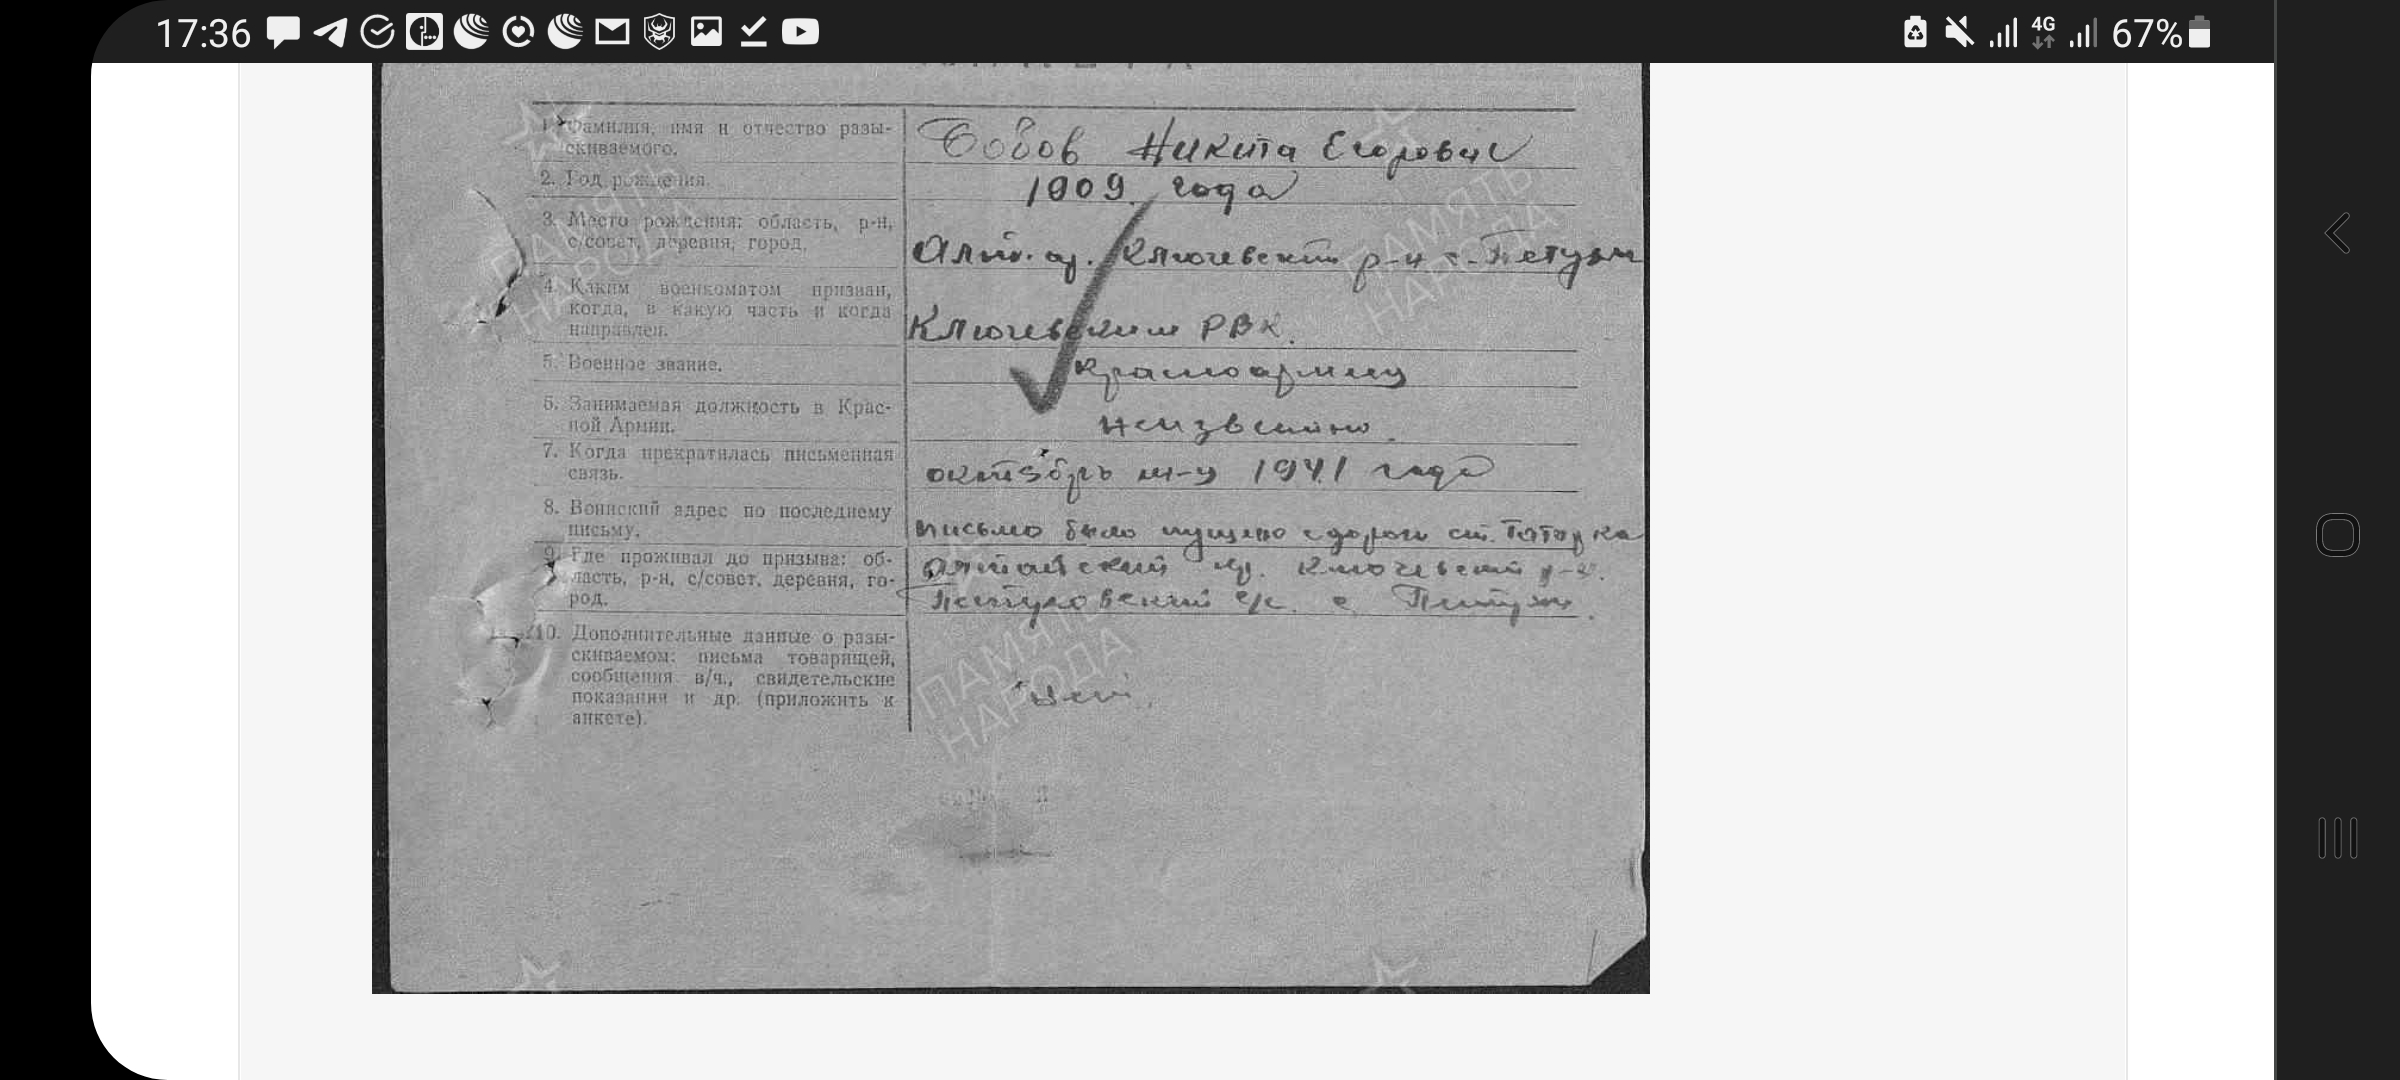 17:36
4G
67%
АНКЕТА
1. Фамилия, имя и отчество разы-
скиваемого.
Бобов Никита Егорович
2. Год рождения.
1909 года
3. Место рождения: область, р-н,
с/совет, деревня, город.
Алт. кр. Ключевский р-н с. Петухи
4. Каким военкоматом призван,
когда, в какую часть и когда
направлен.
Ключевским РВК.
5. Военное звание.
красноармеец
6. Занимаемая должность в Крас-
ной Армии.
неизвестно.
7. Когда прекратилась письменная
связь.
октябрь м-ц 1941 года
8. Воинский адрес по последнему
письму.
письмо было пущено с дороги ст. Татарка
9. Где проживал до призыва: об-
ласть, р-н, с/совет, деревня, го-
род.
Алтайский кр. Ключевский р-н.
Петуховский с/с. с Петухи.
10. Дополнительные данные о разы-
скиваемом: письма товарищей,
сообщения в/ч., свидетельские
показания и др. (приложить к
анкете).
Нет.
ПАМЯТЬ
НАРОДА
ПАМЯТЬ
НАРОДА
ПАМЯТЬ
НАРОДА